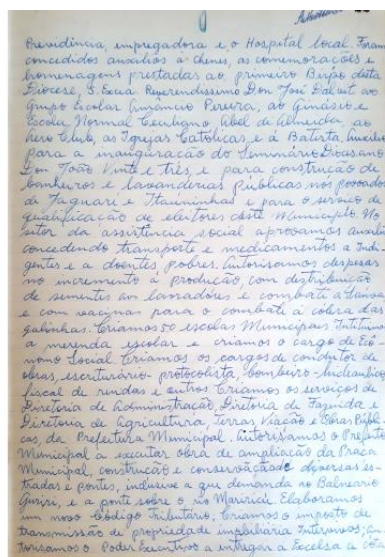 Previdência, empregadora e o Hospital local. Foram
concedidos auxílios à chenes, as comemorações e
homenagens prestadas ao primeiro Bispo desta
Diocese, S. Excia Reverendissimo Don José Dalvit ao
Grupo Escolar Amâncio Pereira, ao Ginásio e
Escola Normal Ceciliano Abel de Almeida, ao
Aero Club, as Igrejas Católicas e á Batista, Auxílio
para a inauguração do Seminário Diocesano
Don João Vinte e três, e para construção de
banheiros e lavanderias Públicas nos povoados
de Jaguaré e Itauninhas e para o serviço de
qualificação de eleitores deste Município. No
setor da assistência social aprovamos auxílio
concedendo transporte e medicamentos a Indi-
gentes e a doentes pobres. Autorisamos despesas
no incremento á produção, com distribuição
de sementes aos lavradores e combate a Sauva
e com vacinas para o combate á cólera das
galinhas. Criamos 50 escolas Municipais Instituimos
a merenda escolar e criamos o cargo de Eco-
nomo Social Criamos os cargos de condutor de
obras, escriturário-protocolista, bombeiro-hidraulico
fiscal de rendas e outros Criamos os serviços de
Diretoria de Administração, Diretoria de Fazenda e
Diretoria de Agricultura, Terras Viação e Obras Públi-
cas, da Prefeitura Municipal. Autorisamos o Prefeito
Municipal a executar obra de ampliação da Praça
Municipal, construção e conservação de diversas es-
tradas e pontes, inclusive a que demanda ao Balneario
Guriri, e a ponte sobre o rio Mariricú. Elaboramos
um novo Código Tributário, Criamos o imposto de
transmissão de propriedade imobiliária Intervivos; Au-
torisamos o Poder Executivo a entregar a Escelsa a